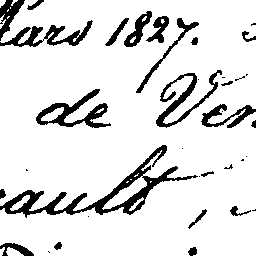 Mars 1827.
de Ven
rault,